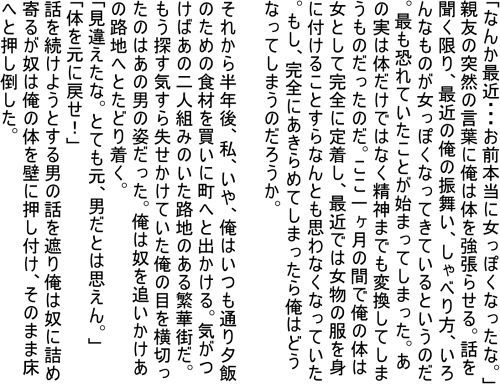 「なんか最近･･･お前本当に女っぽくなったな。」
親友の突然の言葉に俺は体を強張らせる。話を
聞く限り、最近の俺の振舞い、しゃべり方、いろ
んなものが女っぽくなってきているというのだ
。最も恐れていたことが始まってしまった。あ
の実は体だけではなく精神までも変換してしま
うものだったのだ。ここ一ヶ月の間で俺の体は
女として完全に定着し、最近では女物の服を身
に付けることすらなんとも思わなくなっていた
。もし、完全にあきらめてしまったら俺はどう
なってしまうのだろうか。
それから半年後、私、いや、俺はいつも通り夕飯
のための食材を買いに町へと出かける。気がつ
けばあの二人組みのいた路地のある繁華街だ。
もう探す気すら失せかけていた俺の目を横切っ
たのはあの男の姿だった。俺は奴を追いかけあ
の路地へとたどり着く。
「見違えたな。とても元、男だとは思えん。」
「体を元に戻せ！」
話を続けようとする男の話を遮り俺は奴に詰め
寄るが奴は俺の体を壁に押し付け、そのまま床
へと押し倒した。